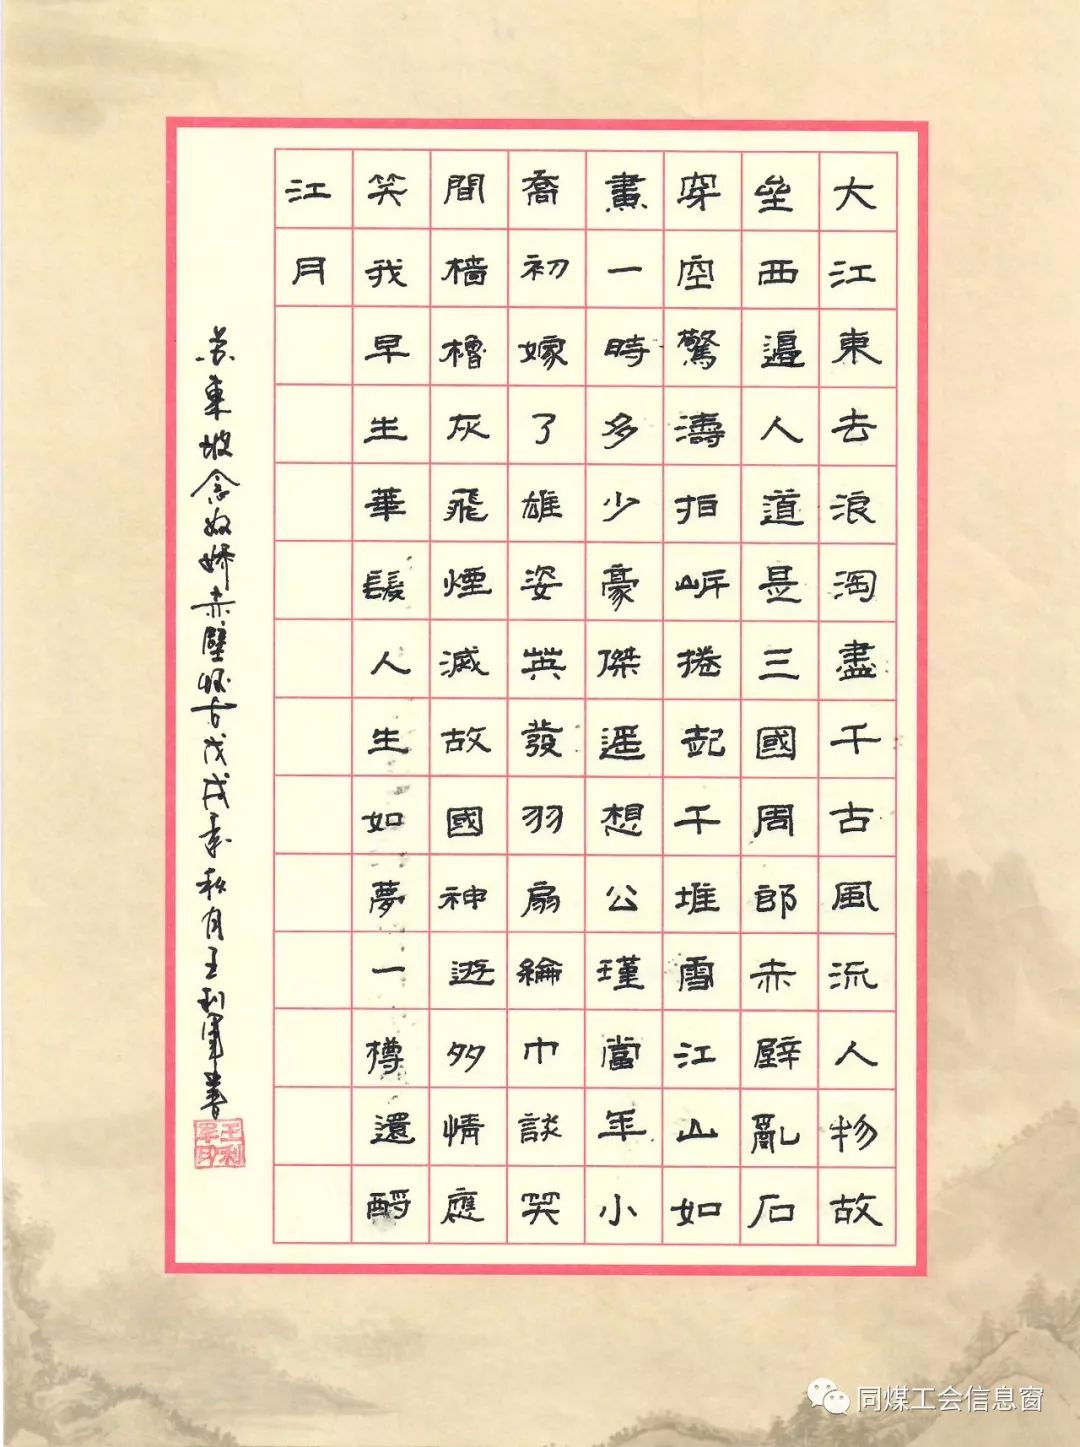 大江東去浪淘盡千古風流人物故
壘西邊人道是三國周郎赤壁亂石
穿空驚濤拍岸捲起千堆雪江山如
畫一時多少豪傑遥想公瑾當年小
喬初嫁了雄姿英發羽扇綸巾談笑
間檣櫓灰飛煙滅故國神遊多情應
笑我早生華髮人生如夢一樽還酹
江月
苏東坡念奴嬌赤壁怀古戊戌年秋月王利軍書
王利軍印
同煤工会信息窗